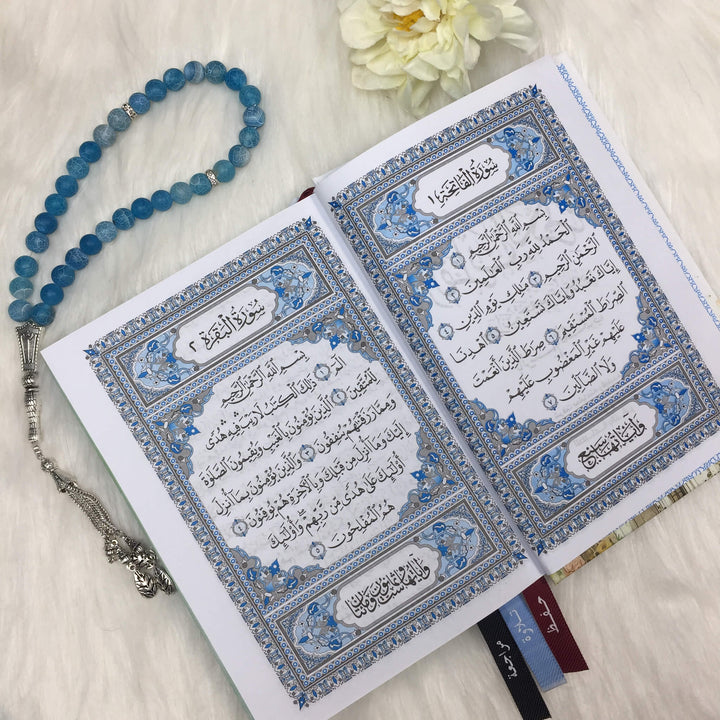 سُورَةُ الْفَاتِحَةِ ١
بِسْمِ اللَّهِ الرَّحْمَٰنِ الرَّحِيمِ ١
الْحَمْدُ لِلَّهِ رَبِّ الْعَالَمِينَ ٢
الرَّحْمَٰنِ الرَّحِيمِ ٣ مَالِكِ يَوْمِ الدِّينِ ٤
إِيَّاكَ نَعْبُدُ وَإِيَّاكَ نَسْتَعِينُ ٥ اهْدِنَا
الصِّرَاطَ الْمُسْتَقِيمَ ٦ صِرَاطَ الَّذِينَ أَنْعَمْتَ
عَلَيْهِمْ غَيْرِ الْمَغْضُوبِ عَلَيْهِمْ
وَلَا الضَّالِّينَ ٧
وَآيَاتُهَا سَبْعٌ
سُورَةُ الْبَقَرَةِ ٢
بِسْمِ اللَّهِ الرَّحْمَٰنِ الرَّحِيمِ
الم ١ ذَٰلِكَ الْكِتَابُ لَا رَيْبَ فِيهِ هُدًى
لِلْمُتَّقِينَ ٢ الَّذِينَ يُؤْمِنُونَ بِالْغَيْبِ وَيُقِيمُونَ الصَّلَاةَ
وَمِمَّا رَزَقْنَاهُمْ يُنْفِقُونَ ٣ وَالَّذِينَ يُؤْمِنُونَ بِمَا أُنْزِلَ
إِلَيْكَ وَمَا أُنْزِلَ مِنْ قَبْلِكَ وَبِالْآخِرَةِ هُمْ يُوقِنُونَ ٤
أُولَٰئِكَ عَلَىٰ هُدًى مِنْ رَبِّهِمْ وَأُولَٰئِكَ
هُمُ الْمُفْلِحُونَ ٥
وَآيَاتُهَا سِتٌّ وَثَمَانُونَ وَمِائَتَانِ
حفظ
تلاوة
مراجعة